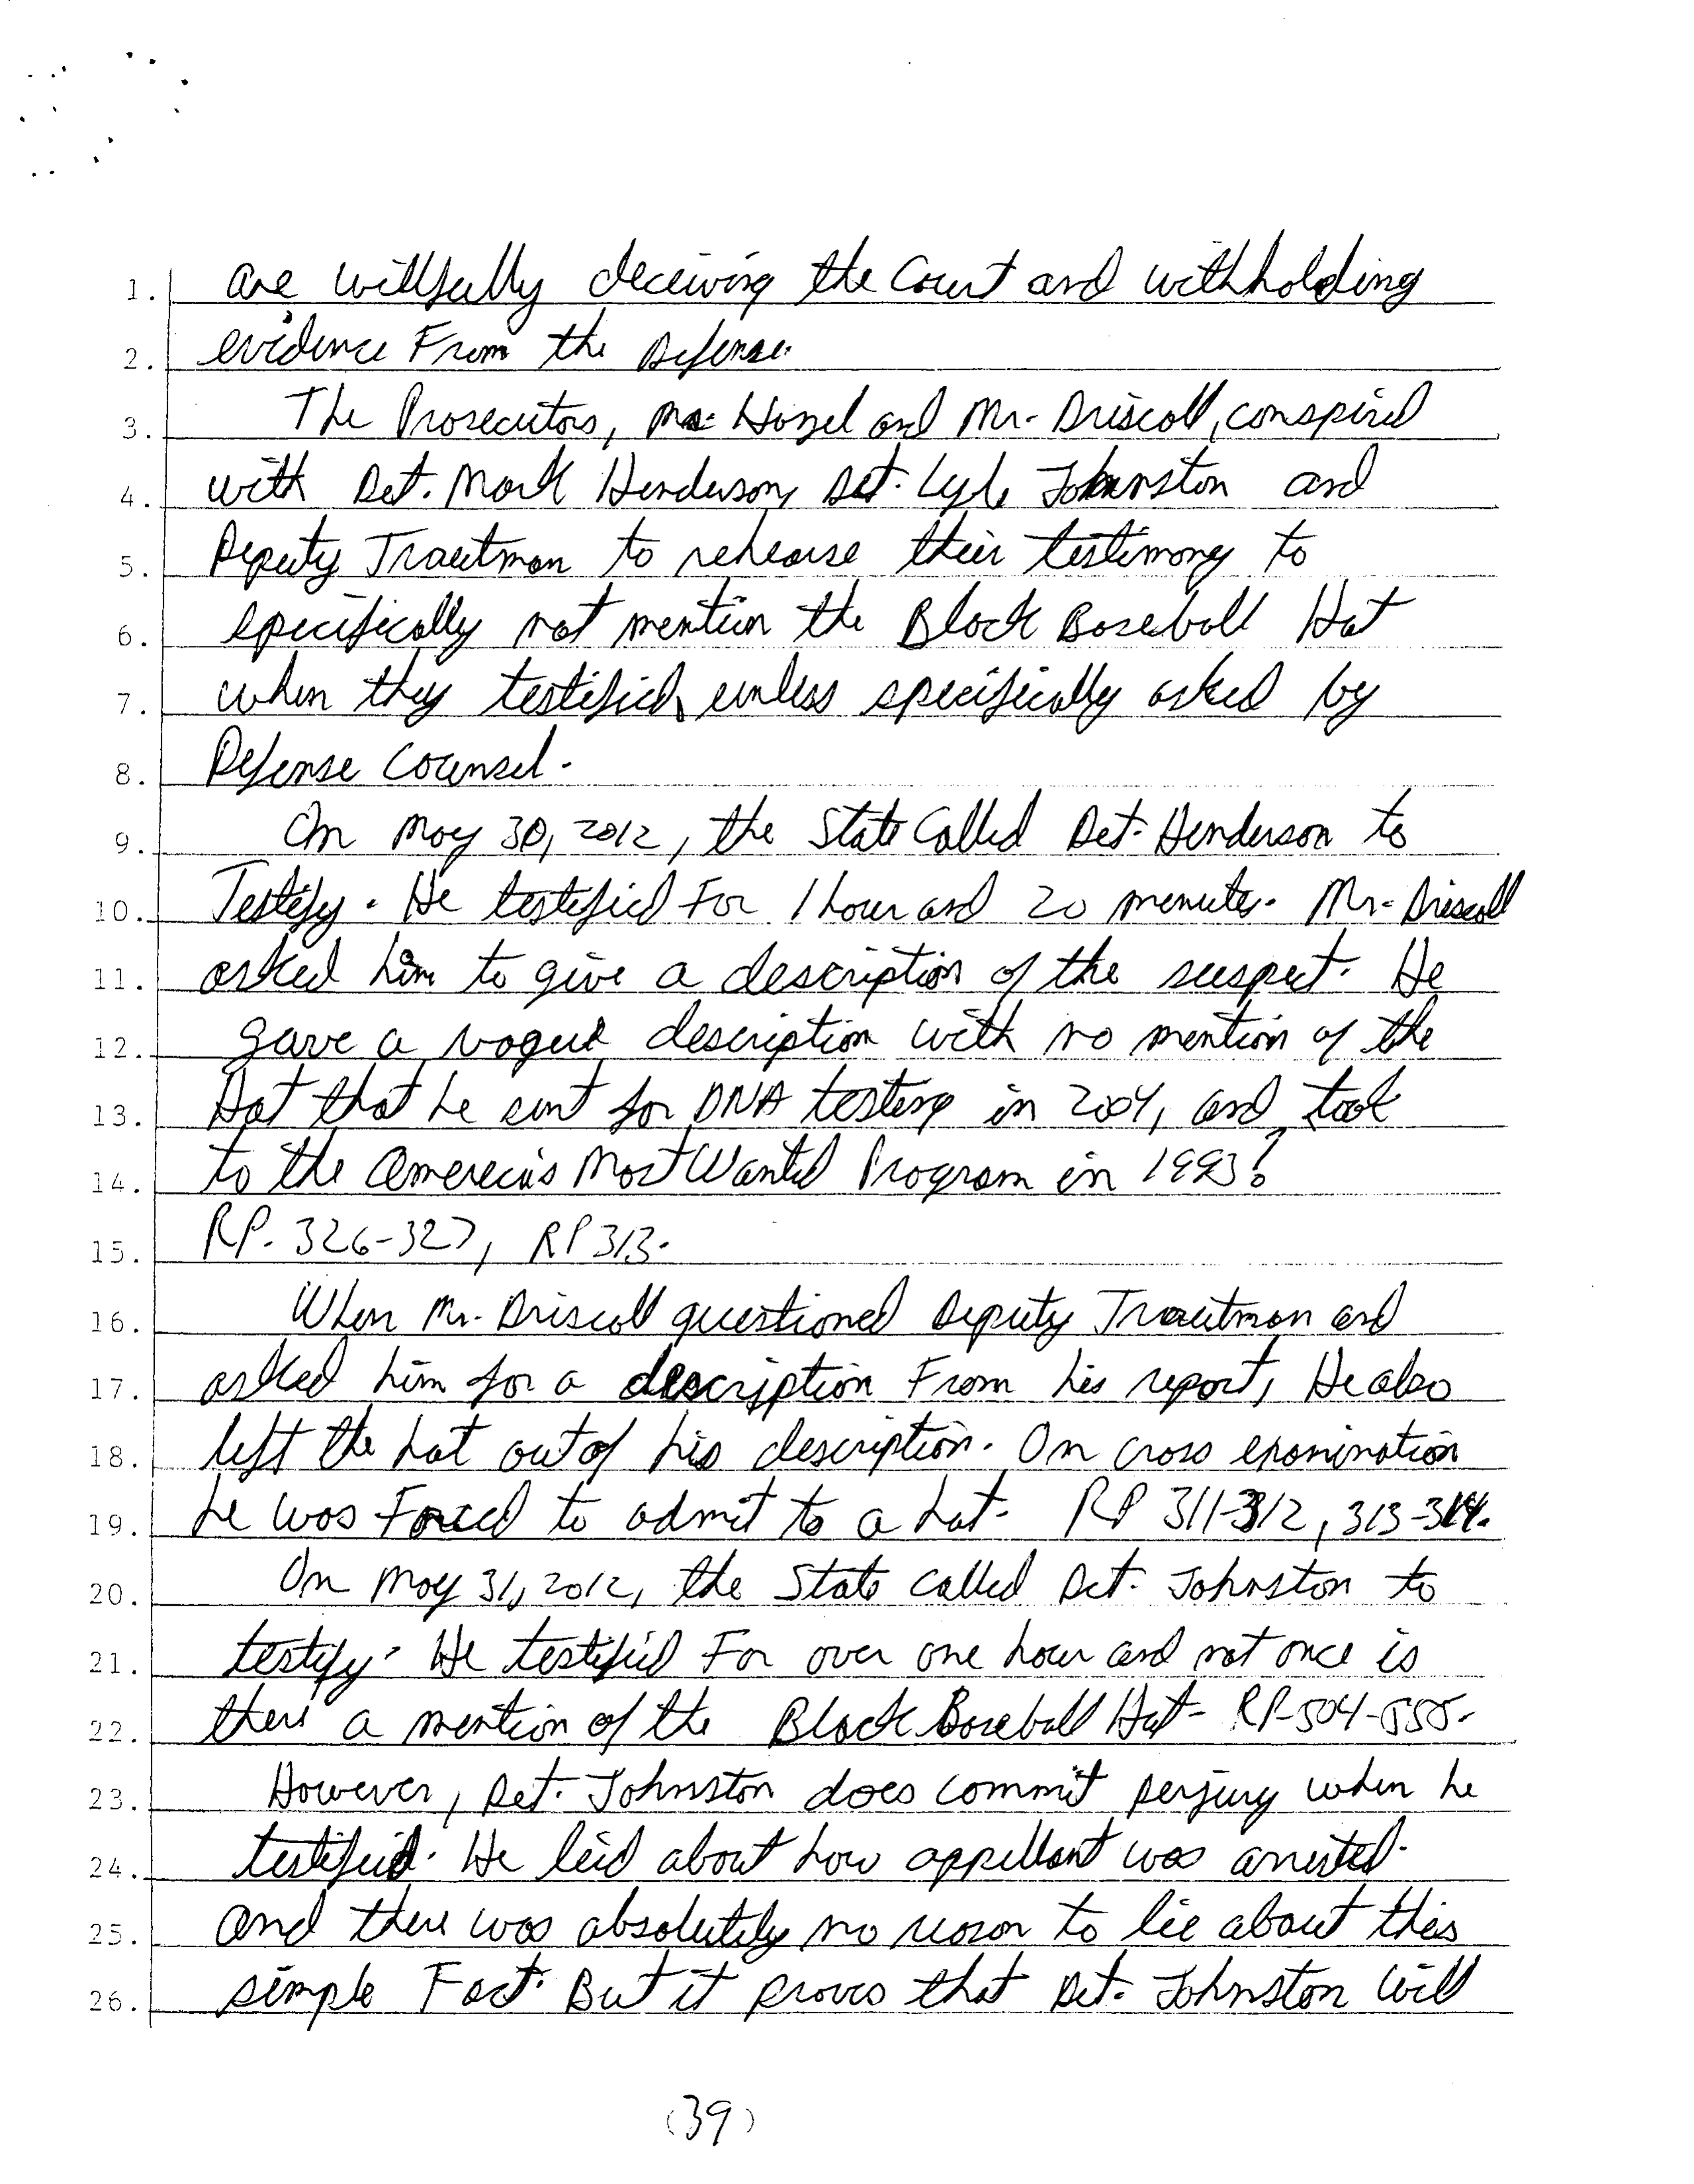 1. are willfully deceiving the Court and withholding
2. evidence From the Defense.
3. The Prosecutors, Mr. Hazel and Mr. Driscoll, conspired
4. with Det. Mark Henderson, Det. Lyle Johnston and
5. Deputy Trautman to rehearse their testimony to
6. specifically not mention the Black Baseball Hat
7. when they testified, unless specifically asked by
8. Defense Counsel.
9. On May 30, 2012, the State Called Det. Henderson to
10. Testify. He testified For 1 hour and 20 menute. Mr. Driscoll
11. asked him to give a description of the suspect. He
12. gave a vague description with no mention of the
13. Hat that he sent for DNA testing in 2004, and took
14. to the Amereca's Most Wanted Program in 1993?
15. RP. 326-327, RP 313.
16. When Mr. Driscoll questioned Deputy Trautman and
17. asked him for a description From his report, He also
18. left the hat out of his description. On cross examination
19. he was Forced to admit to a hat. RP 311-312, 313-314.
20. On May 31, 2012, the State called Det. Johnston to
21. testify. He testified For over one hour and not once is
22. there a mention of the Black Baseball Hat. RP-504-555.
23. However, Det. Johnston does commit perjury when he
24. testified. He leid about how appellant was arrested.
25. and there was absolutely no reason to lie about this
26. simple Fact. But it proves that Det. Johnston will
(39)